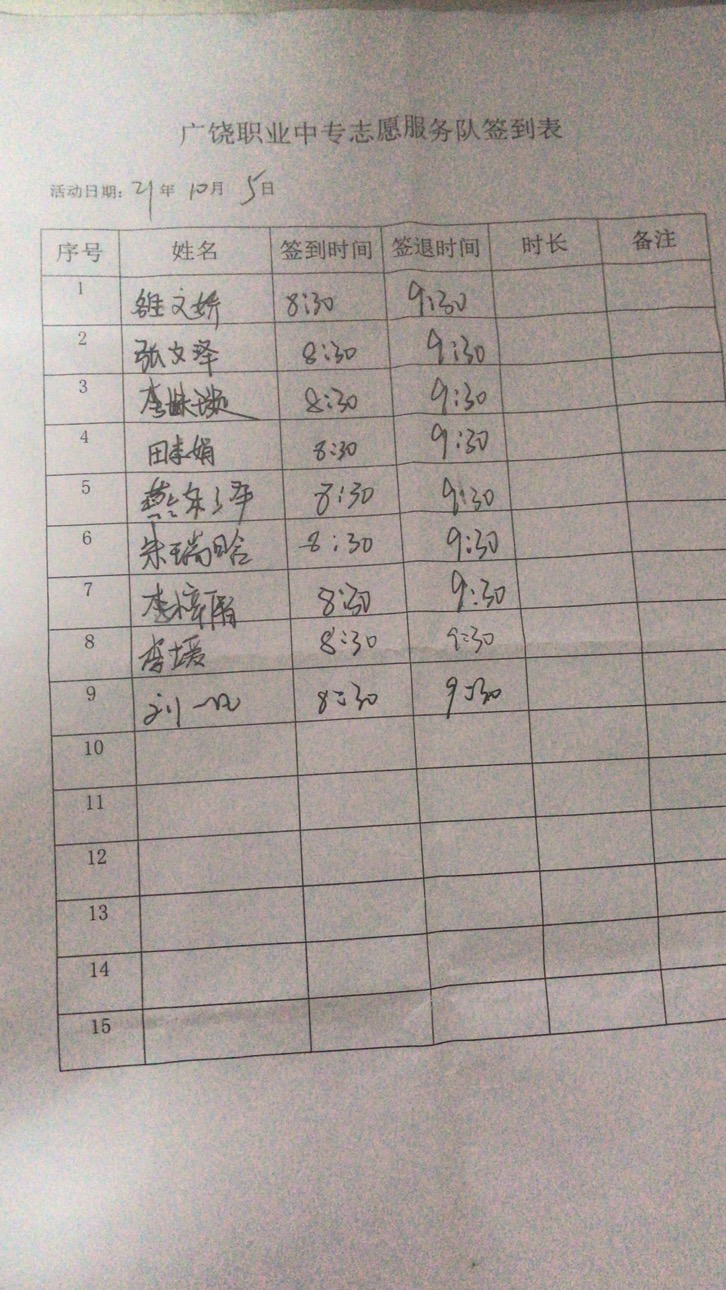 广饶职业中专志愿服务队签到表
活动日期: 21年 10月 5日
序号 姓名 签到时间 签退时间 时长 备注
1 雒文娇 8:30 9:30
2 张文泽 8:30 9:30
3 李 8:30 9:30
4 田未娟 8:30 9:30
5 蔡东泽 8:30 9:30
6 宋瑞晗 8:30 9:30
7 李梓屑 8:30 9:30
8 李媛 8:30 9:30
9 刘一凡 8:30 9:30
10
11
12
13
14
15